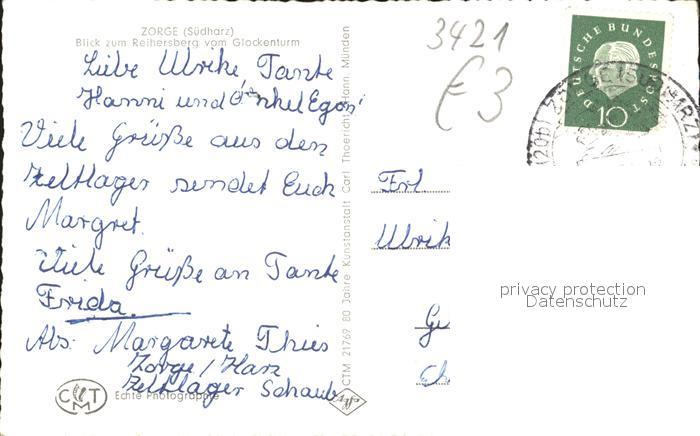 ZORGE (Südharz)
Blick zum Reihersberg vom Glockenturm
3421
€ 3
DEUTSCHE BUNDESPOST
10
Liebe Ulrike, Tante
Hanni und Onkel Egon!
Viele Grüße aus dem
Zeltlager sendet Euch
Margret.
Viele Grüße an Tante
Frida.
Abs. Margarete Thies
Zorge/Harz
Zeltlager Schaub
CTM
Echte Photographie
CTM 21769 80 Jahre Kunstanstalt Carl Thoericht, Hann. Münden
Agfa
Frl.
Ulrik
privacy protection
Datenschutz